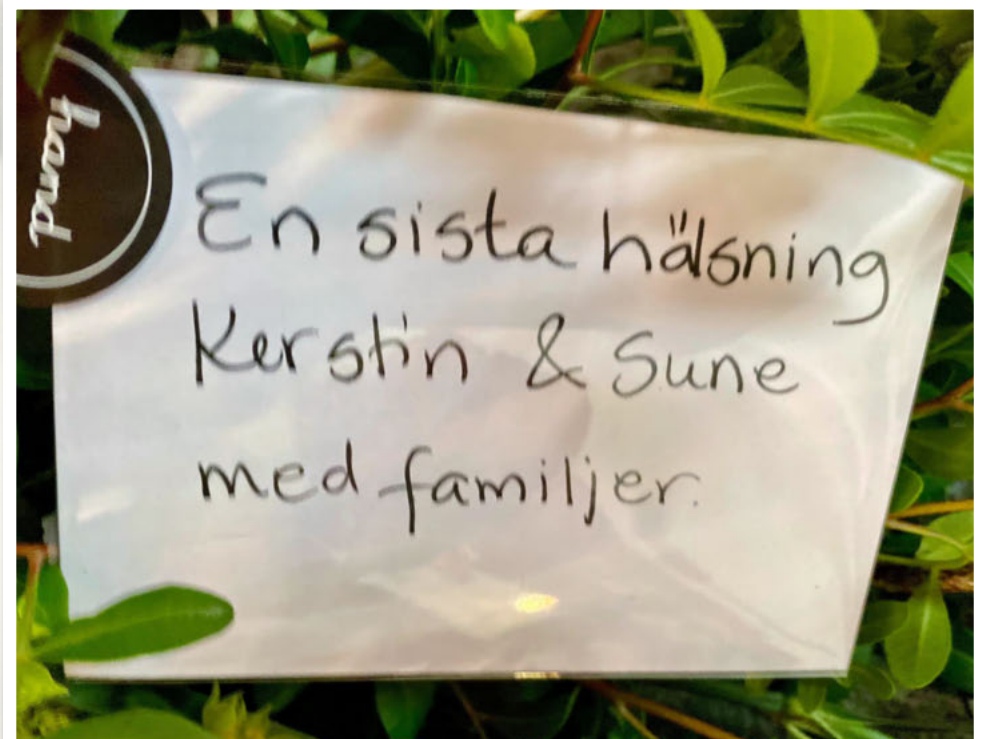 hand
En sista hälsning
Kerstin & Sune
med familjer.